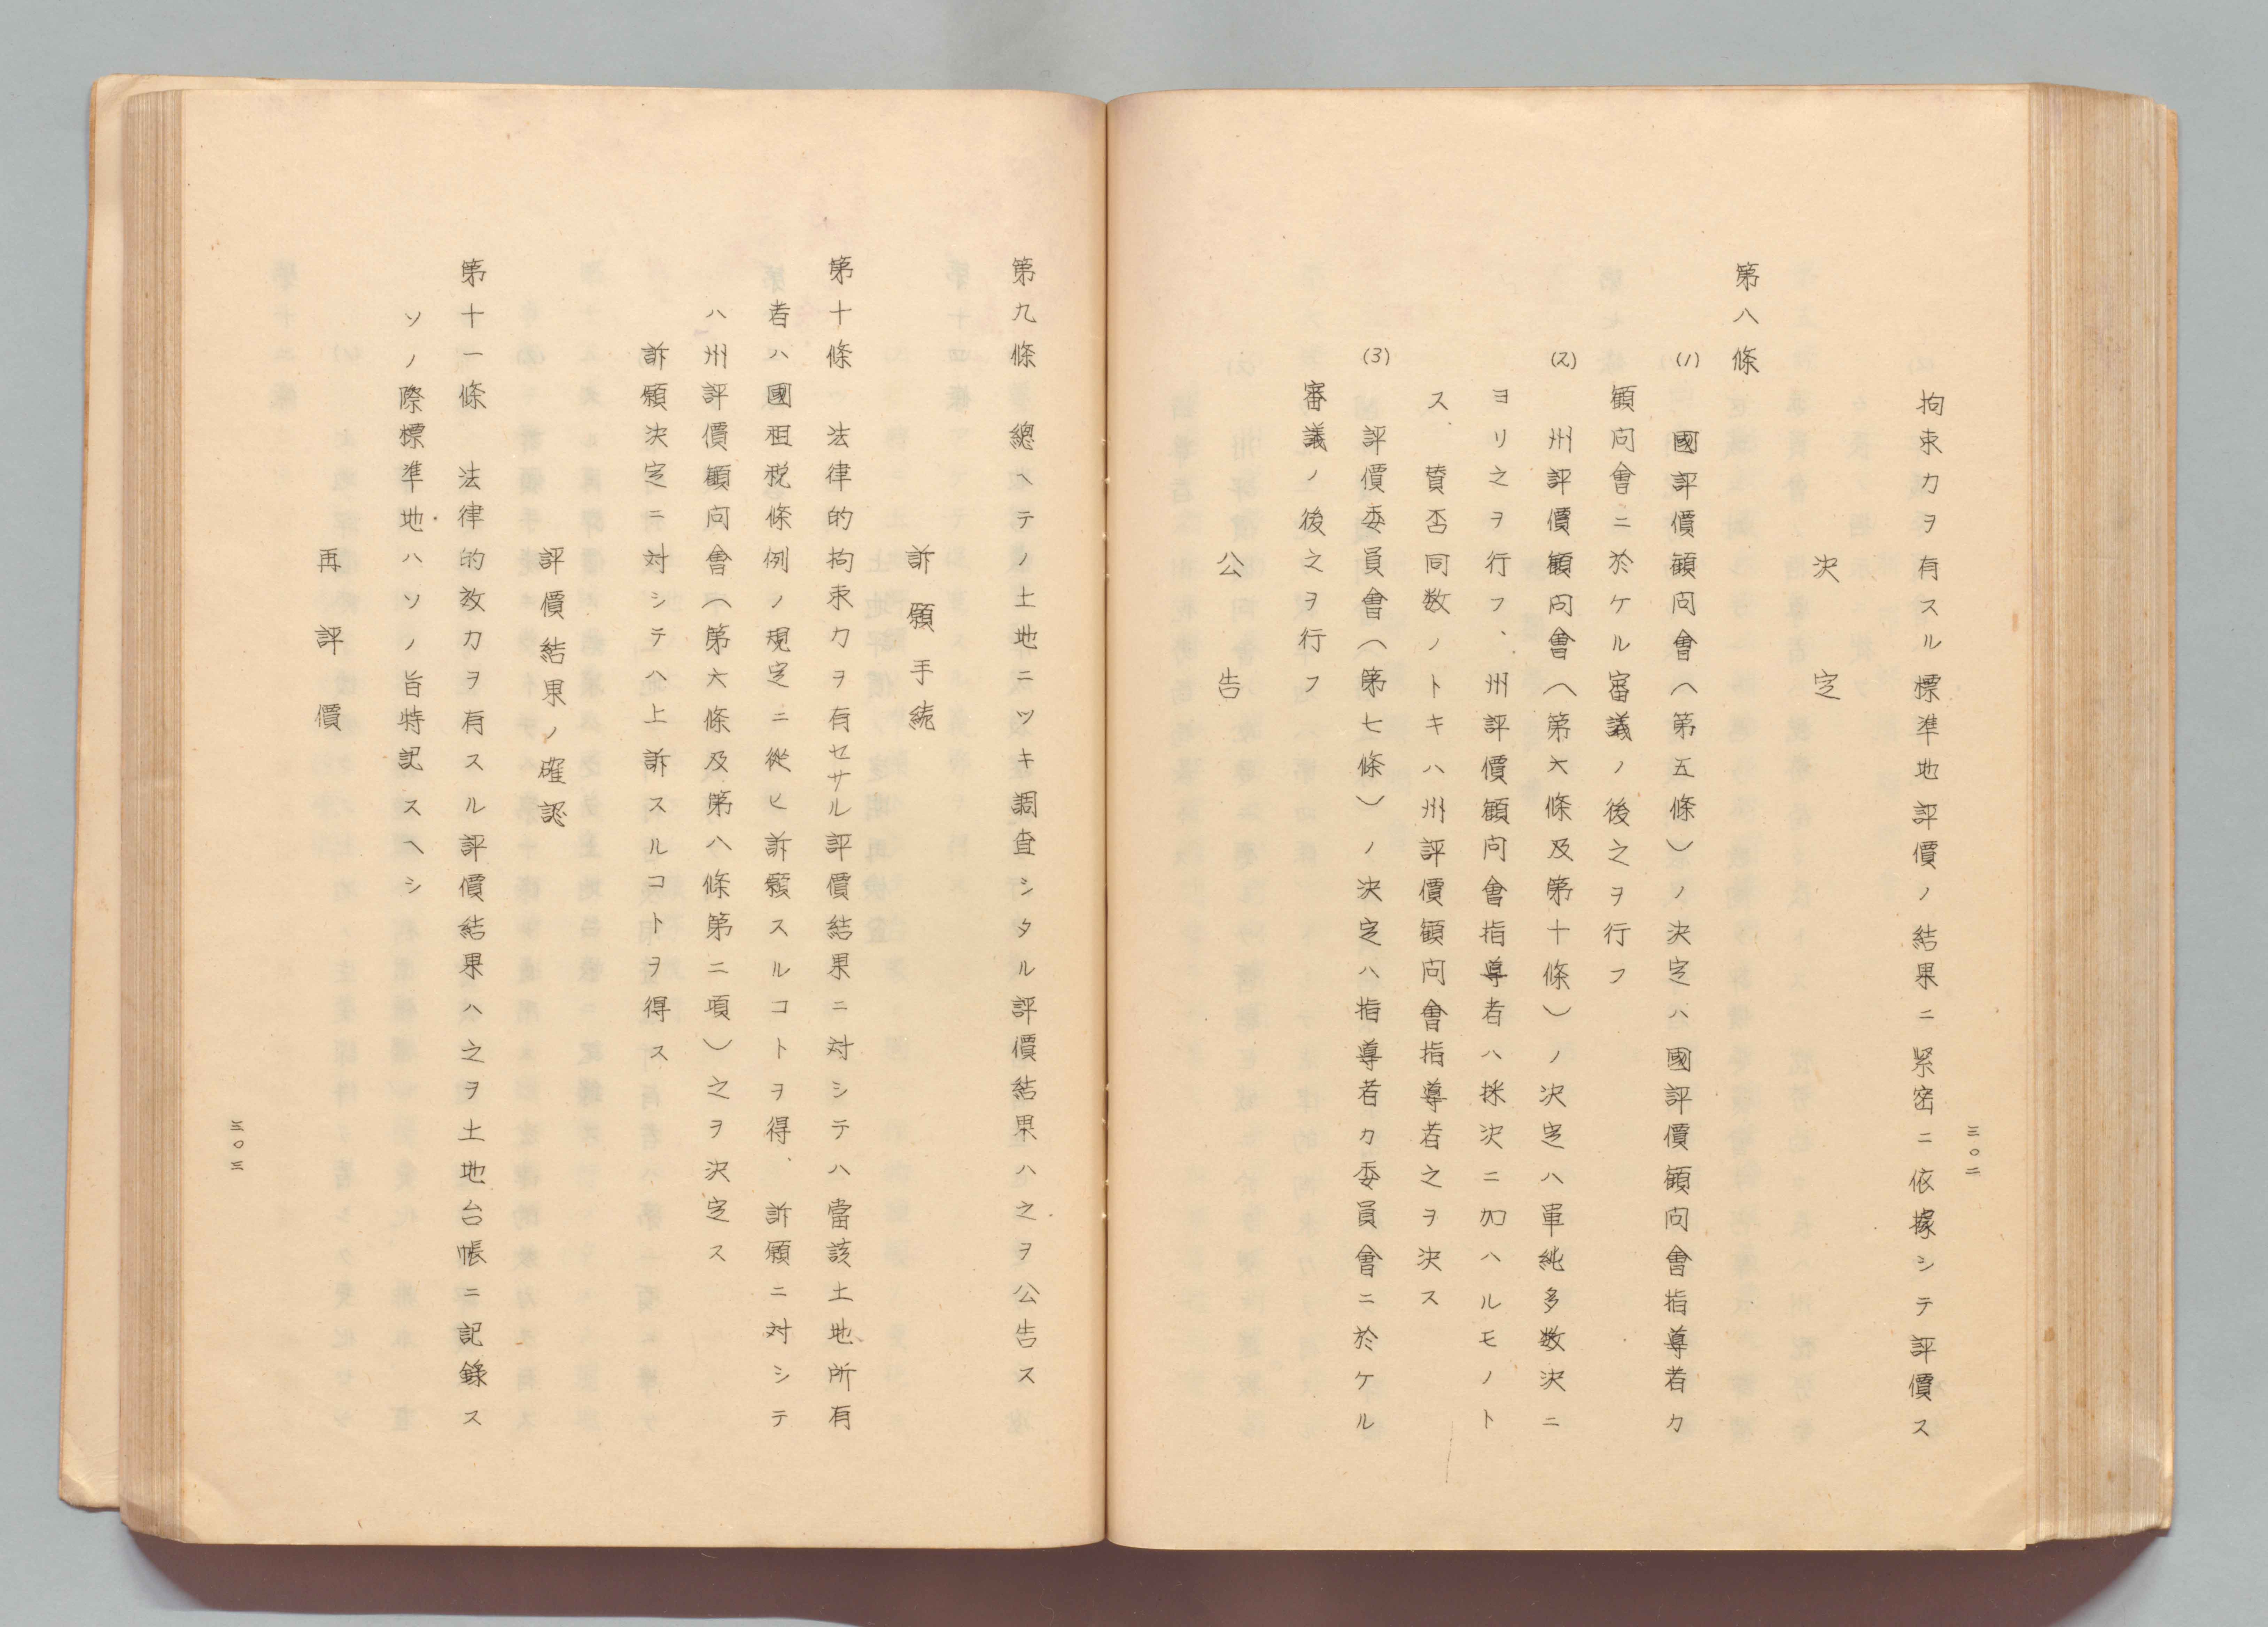 拘束力ヲ有スル標準地評價ノ結果ニ緊密ニ依據シテ評價ス
決定
第八條
(1) 國評價顧問會(第五條)ノ決定ハ國評價顧問會指導者カ
顧問會ニ於ケル審議ノ後之ヲ行フ
(2) 州評價顧問會(第六條及第十條)ノ決定ハ單純多数決ニ
ヨリ之ヲ行フ、州評價顧問會指導者ハ採決ニ加ハルモノト
ス、賛否同数ノトキハ州評價顧問會指導者之ヲ決ス
(3) 評價委員會(第七條)ノ決定ハ指導者カ委員會ニ於ケル
審議ノ後之ヲ行フ
公告
三〇二
第九條 總ヘテノ土地ニツキ調査シタル評價結果ハ之ヲ公告ス
訴願手続
第十條 法律的拘束力ヲ有セサル評價結果ニ対シテハ當該土地所有
者ハ國租税條例ノ規定ニ從ヒ訴願スルコトヲ得、訴願ニ対シテ
ハ州評價顧問會(第六條及第八條第二項)之ヲ決定ス
訴願決定ニ対シテハ上訴スルコトヲ得ス
評價結果ノ確認
第十一條 法律的效力ヲ有スル評價結果ハ之ヲ土地台帳ニ記錄ス
ソノ際標準地ハソノ旨特記スヘシ
再評價
三〇三